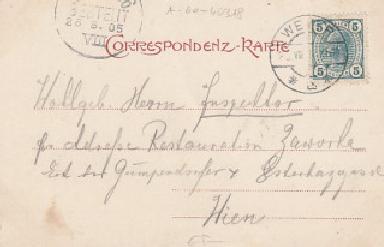 A-60-60318
BESTELLT
26.8.05
VIII
CORRESPONDENZ-KARTE
WE
5 5
5 5
Wollgeb. Herrn Inspektor
pr Adresse Restauration Zaworka
Eck der Gumpendorfer & Esterhazygasse
Wien